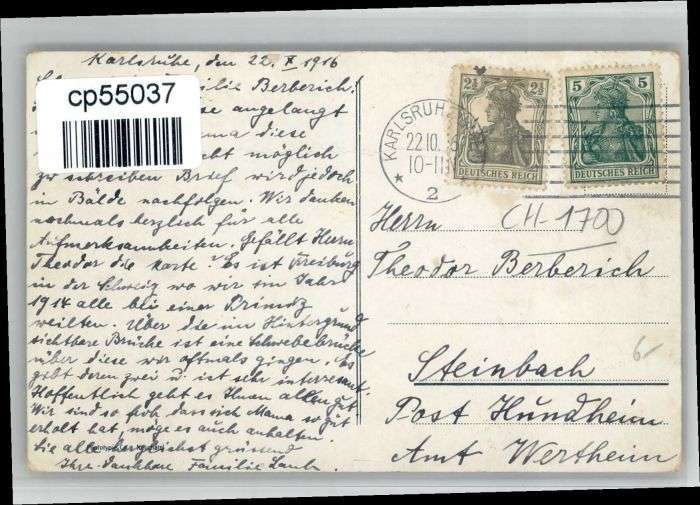 Karlsruhe, den 22. X 1916
Familie Berberich!
cp55037
angelangt
Mama diese
nicht möglich
zu schreiben Brief wird jedoch
in Bälde nachfolgen. Wir danken
nochmals herzlich für alle
Aufmerksamkeiten. Gefällt Herrn
Theodor die Karte? Es ist Freiburg
in der Schweiz wo wir im Jahr
1914 alle bei einer Primiz
weilten. Über die im Hintergrund
sichtbare Brücke ist eine Schwebebrücke
über diese wir oftmals gingen. Es
gibt deren zwei u. ist sehr interessant.
Hoffentlich geht es Ihnen allen gut
Wir sind so froh dass sich Mama so gut
erholt hat, möge es auch anhalten.
Sie alle herzlichst grüssend
Ihre dankbare Familie Laub.
KARLSRUHE
22.10.16
10-11
2
2½ 2½
DEUTSCHES REICH
5 5
DEUTSCHES REICH
Herrn
CH-1700
Theodor Berberich
6-
Steinbach
Post Hundheim
Amt Wertheim